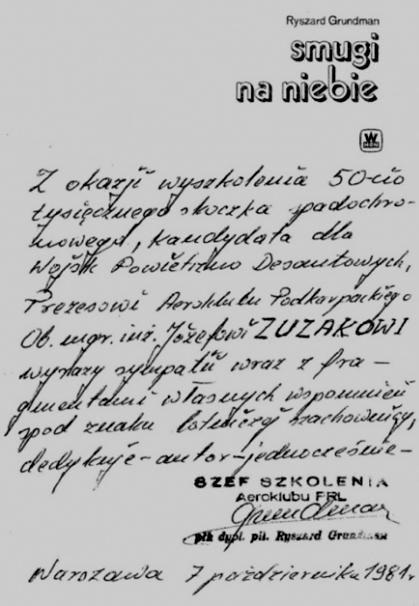 Ryszard Grundman
smugi
na niebie
W
MON
Z okazji wyszkolenia 50-cio
tysięcznego skoczka spadochro-
nowego, kandydata dla
Wojsk Powietrzno Desantowych,
Prezesowi Aeroklubu Podkarpackiego
Ob. mgr. inż. Józefowi ZUZAKOWI
wyrazy sympatii wraz z fra-
gmentami własnych wspomnień
spod znaku lotniczej szachownicy,
dedykuje - autor - jednocześnie -
SZEF SZKOLENIA
Aeroklubu PRL
Grundman
płk dypl. pil. Ryszard Grundman
Warszawa 7 października 1981r